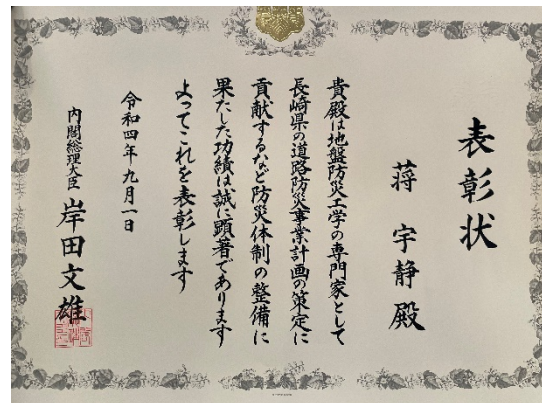 表彰状
蒋宇静殿
貴殿は地盤防災工学の専門家として
長崎県の道路防災事業計画の策定に
貢献するなど防災体制の整備に
果たした功績は誠に顕著であります
よってこれを表彰します
令和四年九月一日
内閣総理大臣 岸田文雄